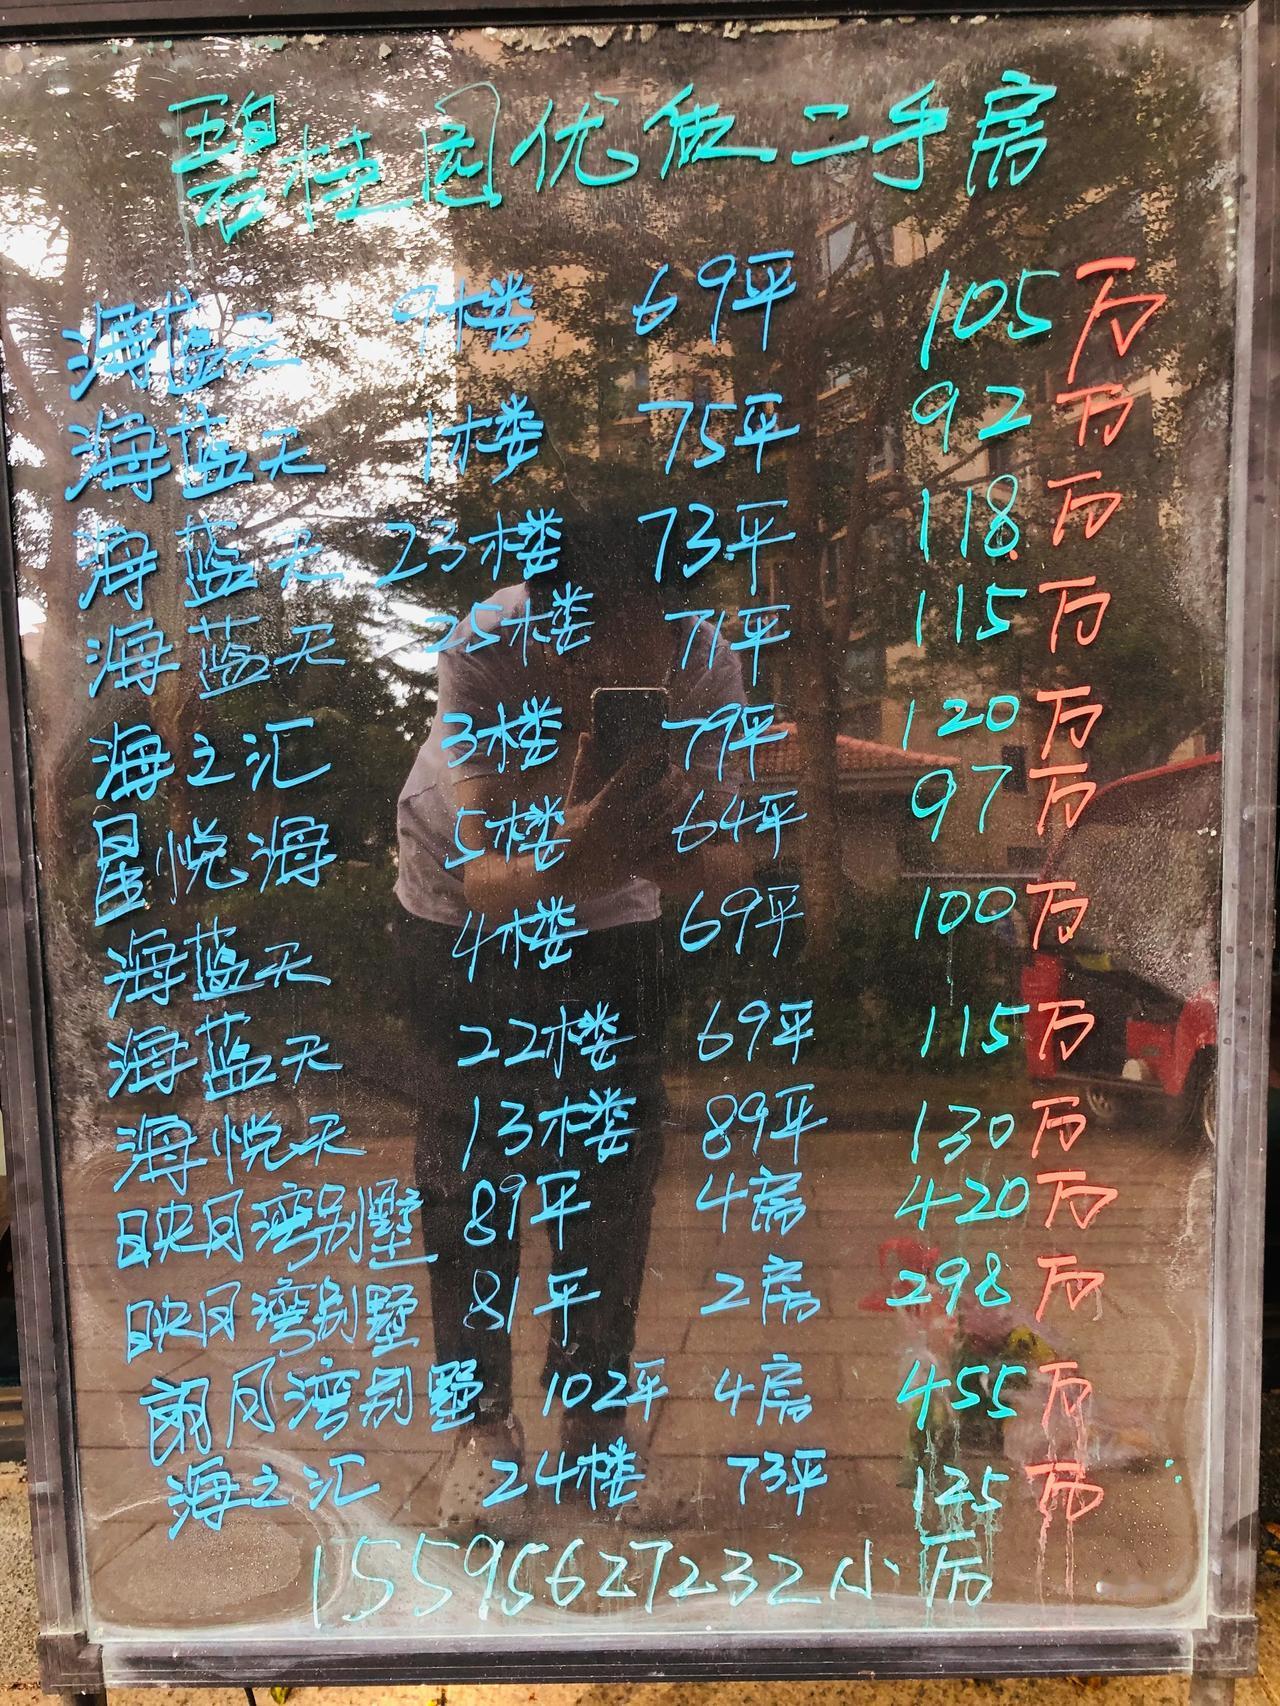 碧桂园优质二手房
海蓝天 9楼 69平 105万
海蓝天 1楼 75平 92万
海蓝天 23楼 73平 118万
海蓝天 25楼 71平 115万
海之汇 3楼 79平 120万
星悦海 5楼 64平 97万
海蓝天 4楼 69平 100万
海蓝天 22楼 69平 115万
海悦天 13楼 89平 130万
映月湾别墅 89平 4房 420万
映月湾别墅 81平 2房 298万
朗月湾别墅 102平 4房 455万
海之汇 24楼 73平 125万
15595627232小